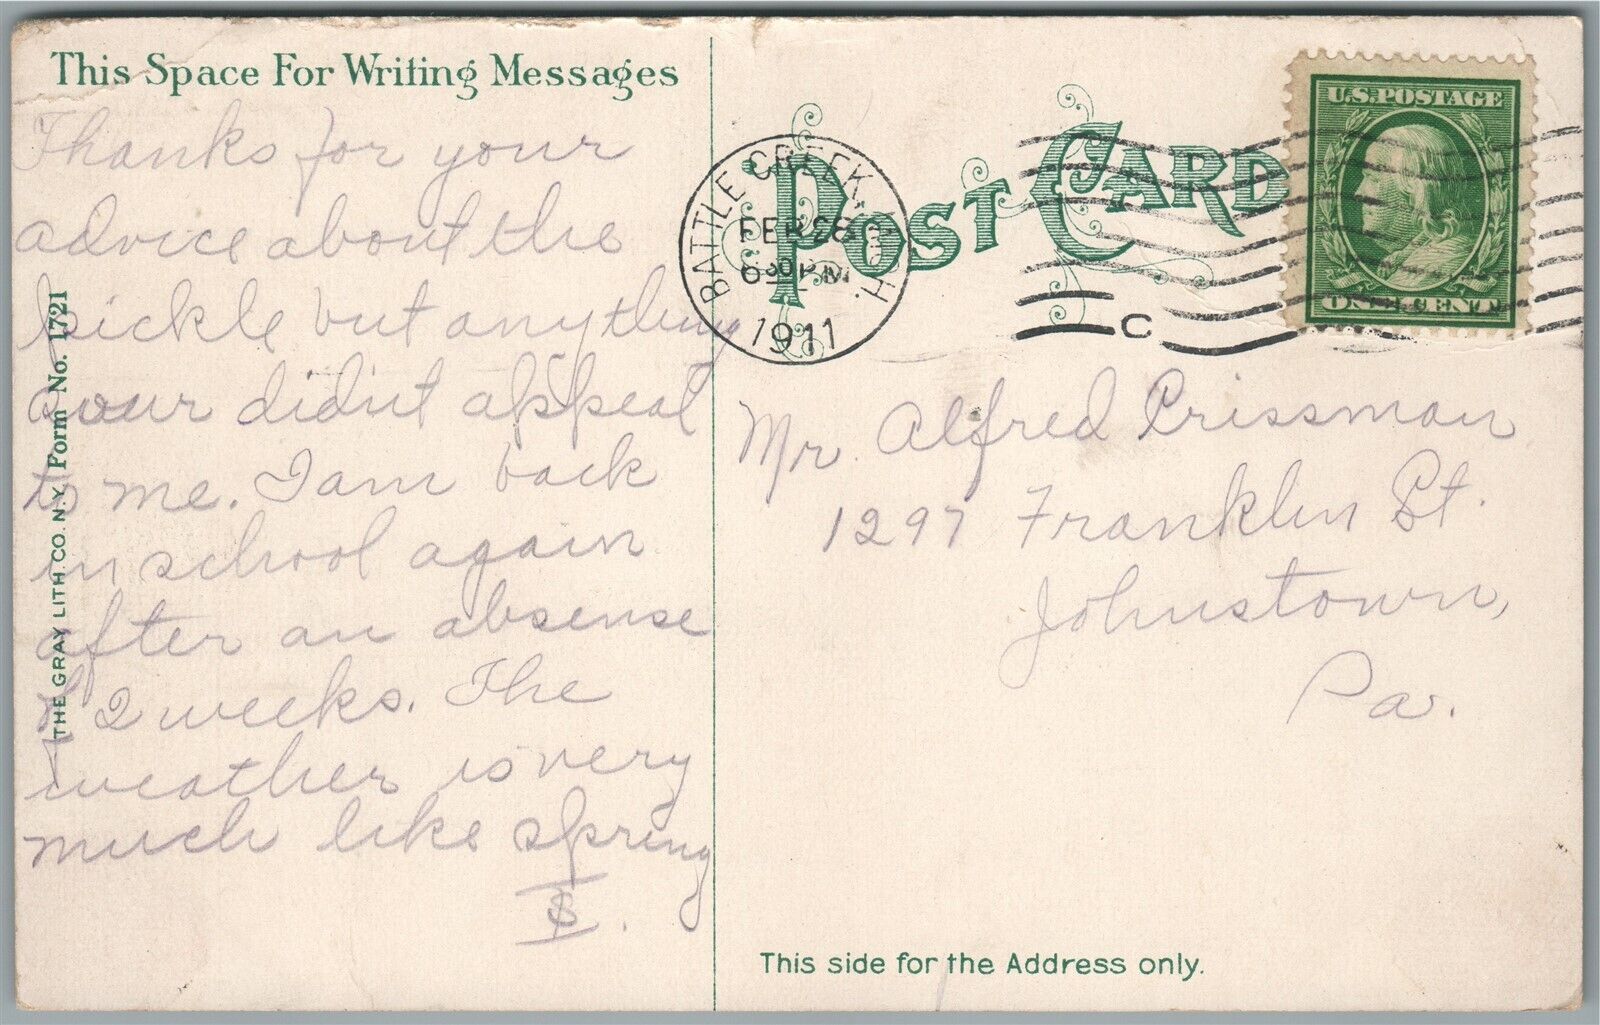 This Space For Writing Messages
Thanks for your
advice about the
pickle but anything
sour didn't appeal
to me. I am back
in school again
after an absense
of 2 weeks. The
weather is very
much like spring
THE GRAY LITH. CO. N.Y. Form No. 1721
POST CARD
BATTLE CREEK, MICH.
FEB 28
630 PM
1911
C
U.S. POSTAGE
ONE CENT
Mr. Alfred Crissman
1297 Franklin St.
Johnstown,
Pa.
This side for the Address only.